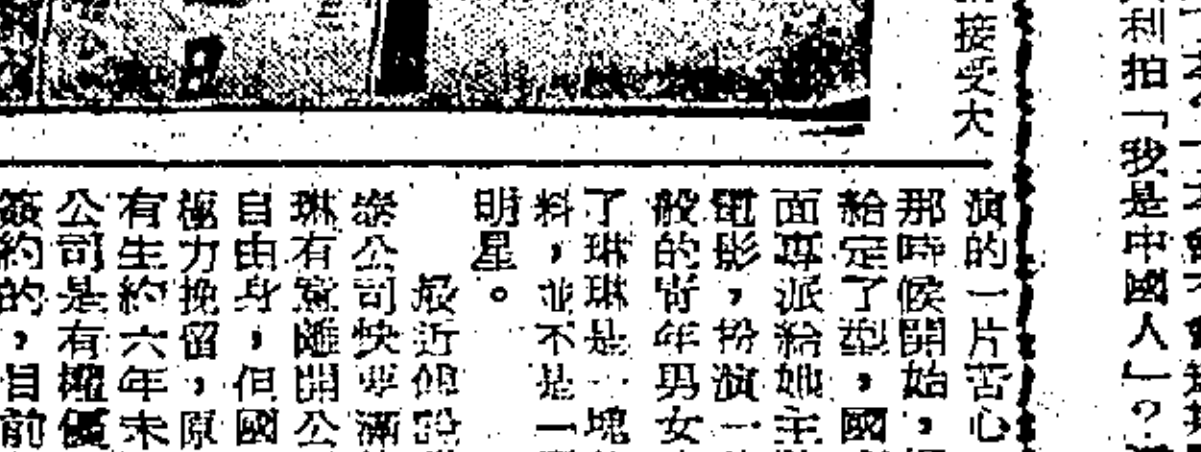 利拍「我是中國人」？
接受大
演的一片苦心
那時候開始，
給定了型，國
面專派給她主
電影，扮演一
般的青年男女
了琳琳是一塊
料，並不是一
明星。
最近
泰公司快要滿
琳有意離開公
自由身，但國
極力挽留，原
有生約六年未
公司是有權優
簽約的，目前